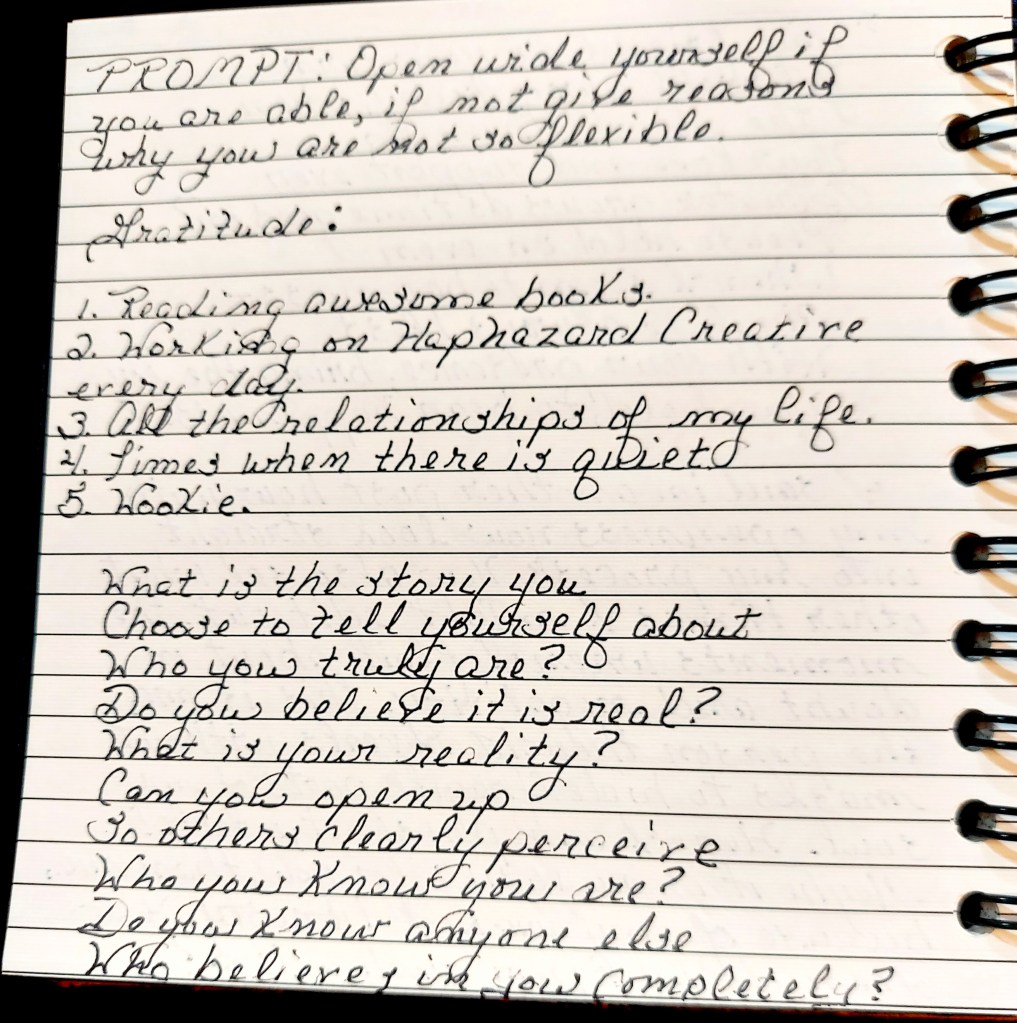 PROMPT: Open wide yourself if
you are able, if not give reasons
why you are not so flexible.
Gratitude:
1. Reading awesome books.
2. Working on Haphazard Creative
every day.
3. All the relationships of my life.
4. Times when there is quiet
5. Wookie.
What is the story you
Choose to tell yourself about
Who you truly are?
Do you believe it is real?
What is your reality?
Can you open up
So others clearly perceive
Who you know you are?
Do you know anyone else
Who believes in you completely?